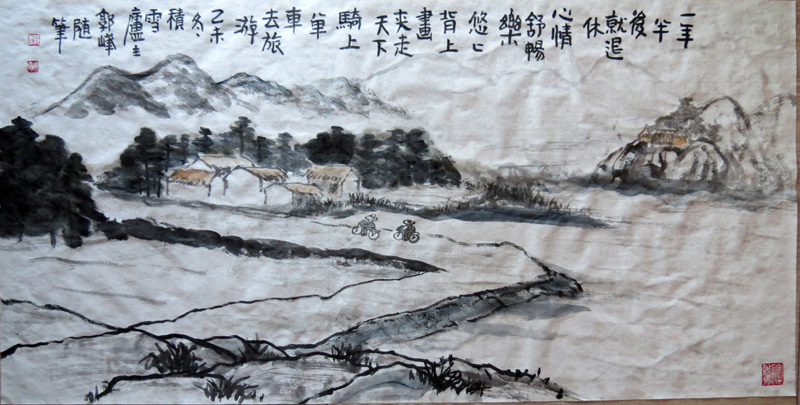 一年
半
後
就退
休
心情
舒暢
樂
悠〻
背上
畫
夾走
天下
騎上
單
車
去旅
游
乙未
冬
積
雪
廬主
郭峰
隨
筆